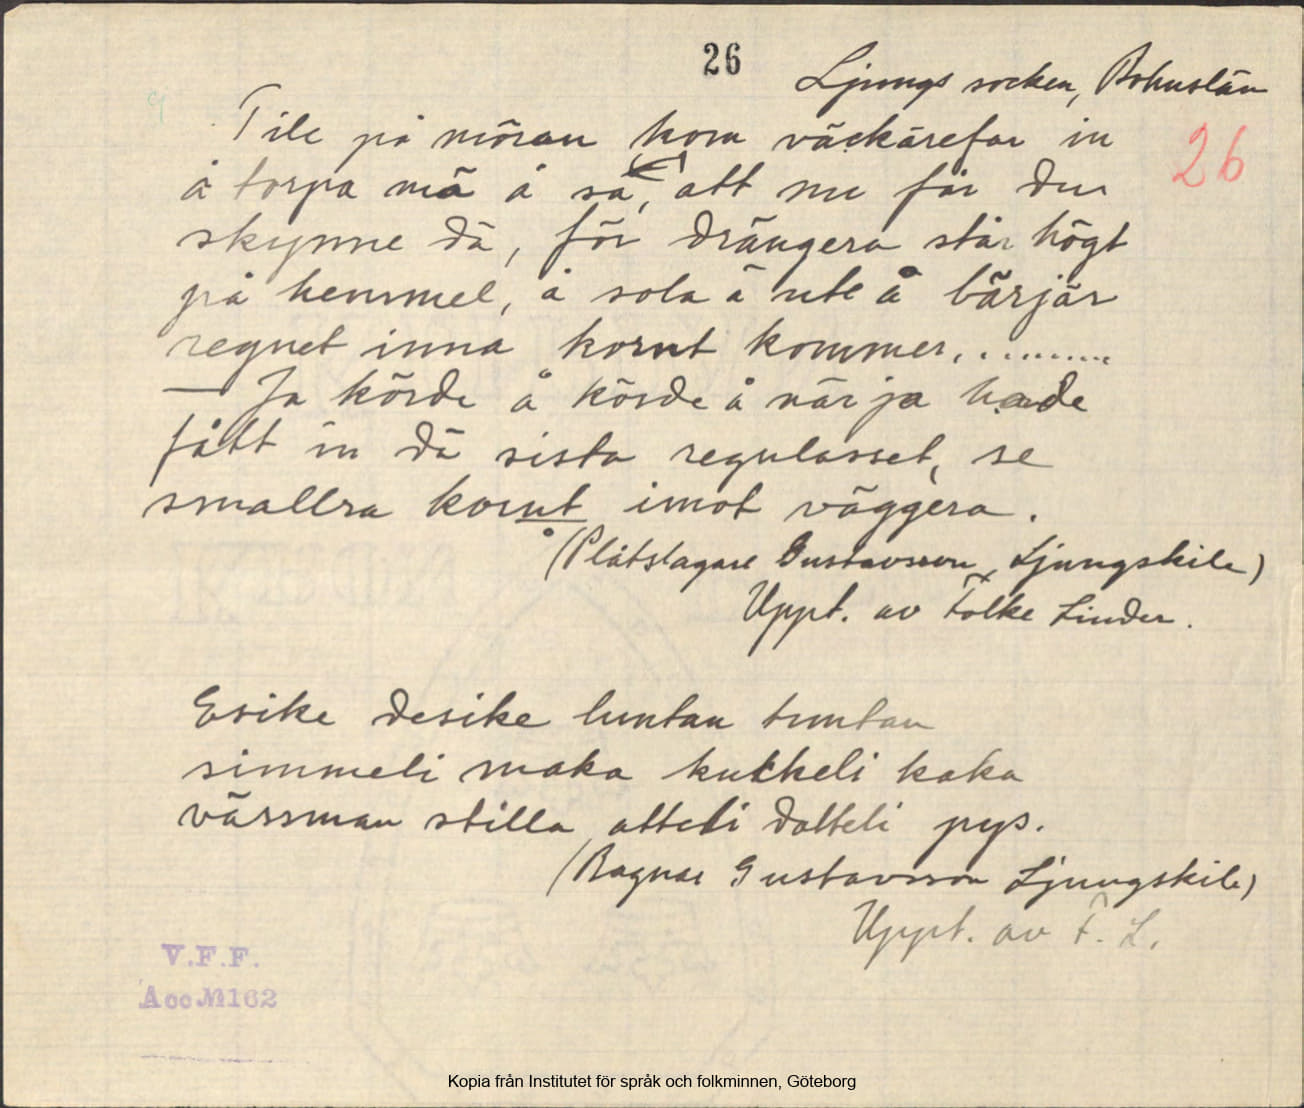 26
Ljungs socken, Bohuslän
Tile på môran kom väckärefar in
26
å torpa mä å sa, att nu får du
skynne dä, för drängera står högt
på hemmel, å sola ä ute å bärjär
regnet inna kornt kommer. ........
— Ja körde å körde å när ja hade
fått in dä sista regnlasset, se
smallra kornt imot väggera.
(Plåtslagare Gustavsson, Ljungskile)
Uppt. av Folke Linder.
Erike desike luntan tuntan
simmeli maka kukkeli kaka
värsman stilla atteli datteli pys.
(Ragnar Gustavsson Ljungskile)
Uppt. av F. L.
V.F.F.
Acc №162
Kopia från Institutet för språk och folkminnen, Göteborg